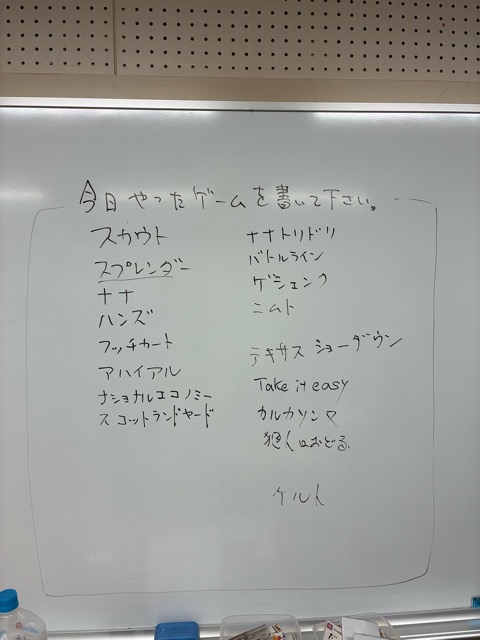 今日やったゲームを書いて下さい。
スカウト
スプレンダー
ナナ
ハンズ
フッチカート
アハイアル
ナショナルエコノミー
スコットランドヤード
ナナトリドリ
バトルライン
ゲシェンク
ニムト
テキサス ショーダウン
Take it easy
カルカソンヌ
犯人はおどる
ケルト